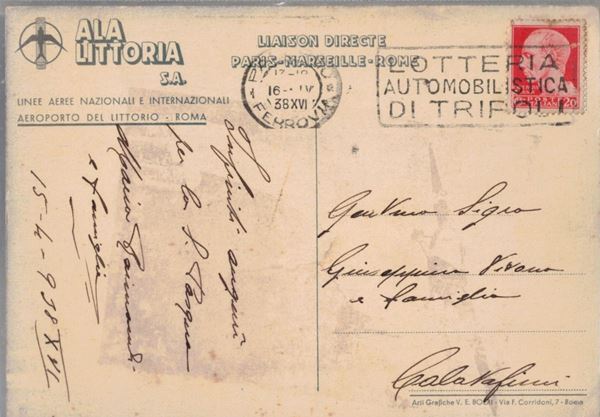 ALA
LITTORIA
S.A.
LINEE AEREE NAZIONALI E INTERNAZIONALI
AEROPORTO DEL LITTORIO - ROMA
LIAISON DIRECTE
PARIS-MARSEILLE-ROME
16
38 XVI
FERROVIA
LOTTERIA
AUTOMOBILISTICA
DI TRIPOLI
20
Infiniti auguri
per la S. Pasqua
Maria
e famiglia
15-4-938 XVI
Giuseppina Vivona
e famiglia
Calatafimi
Arti Grafiche V. E. BOERI - Via F. Corridoni, 7 - Roma